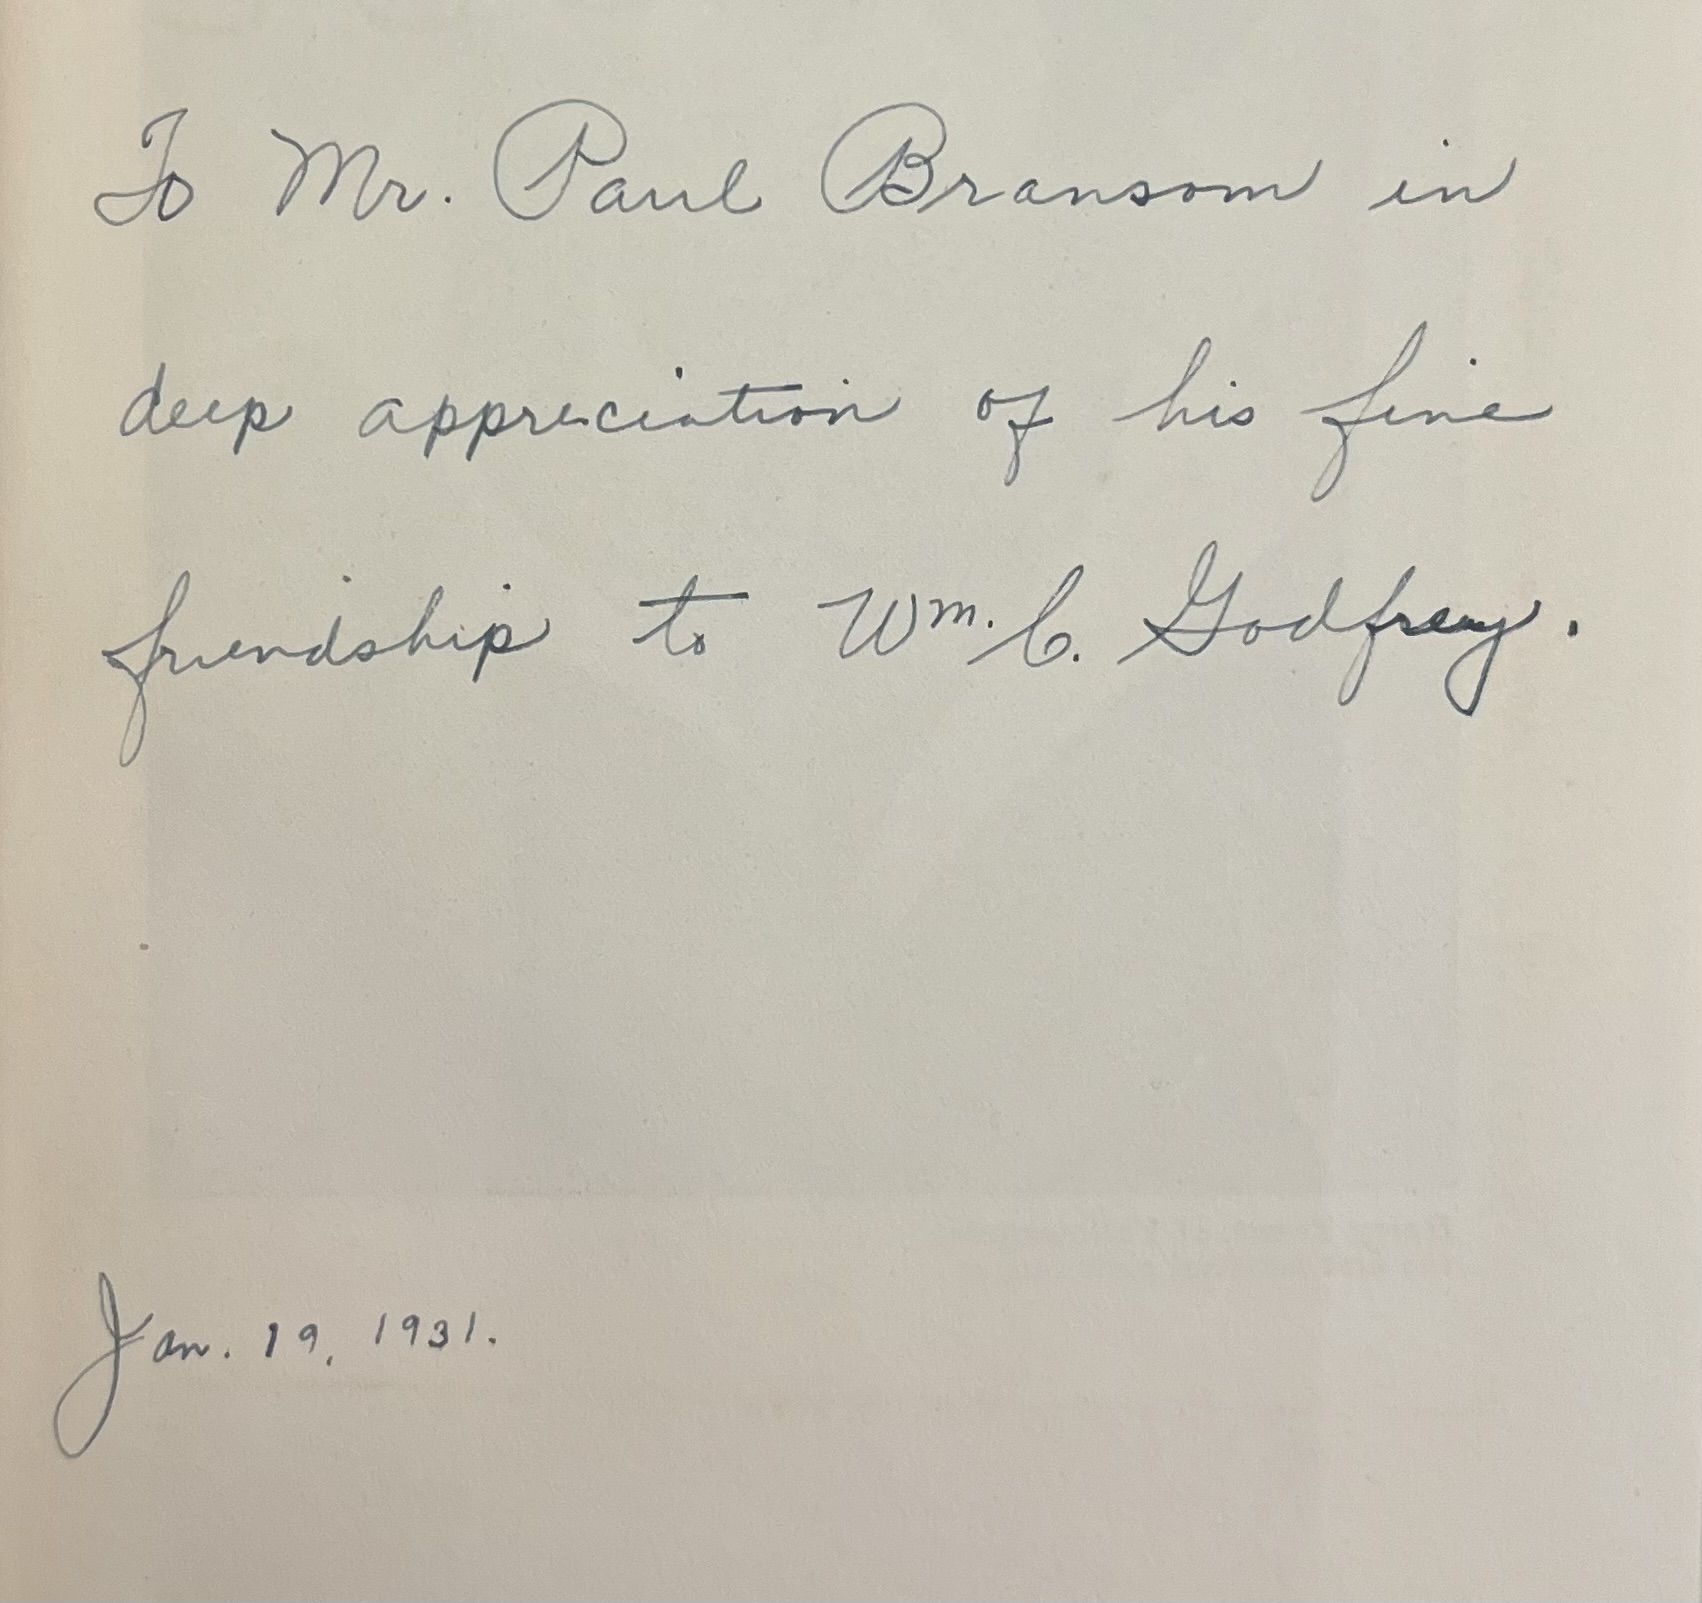 To Mr. Paul Bransom in
deep appreciation of his fine
friendship to Wm. C. Godfrey.
Jan. 19, 1931.